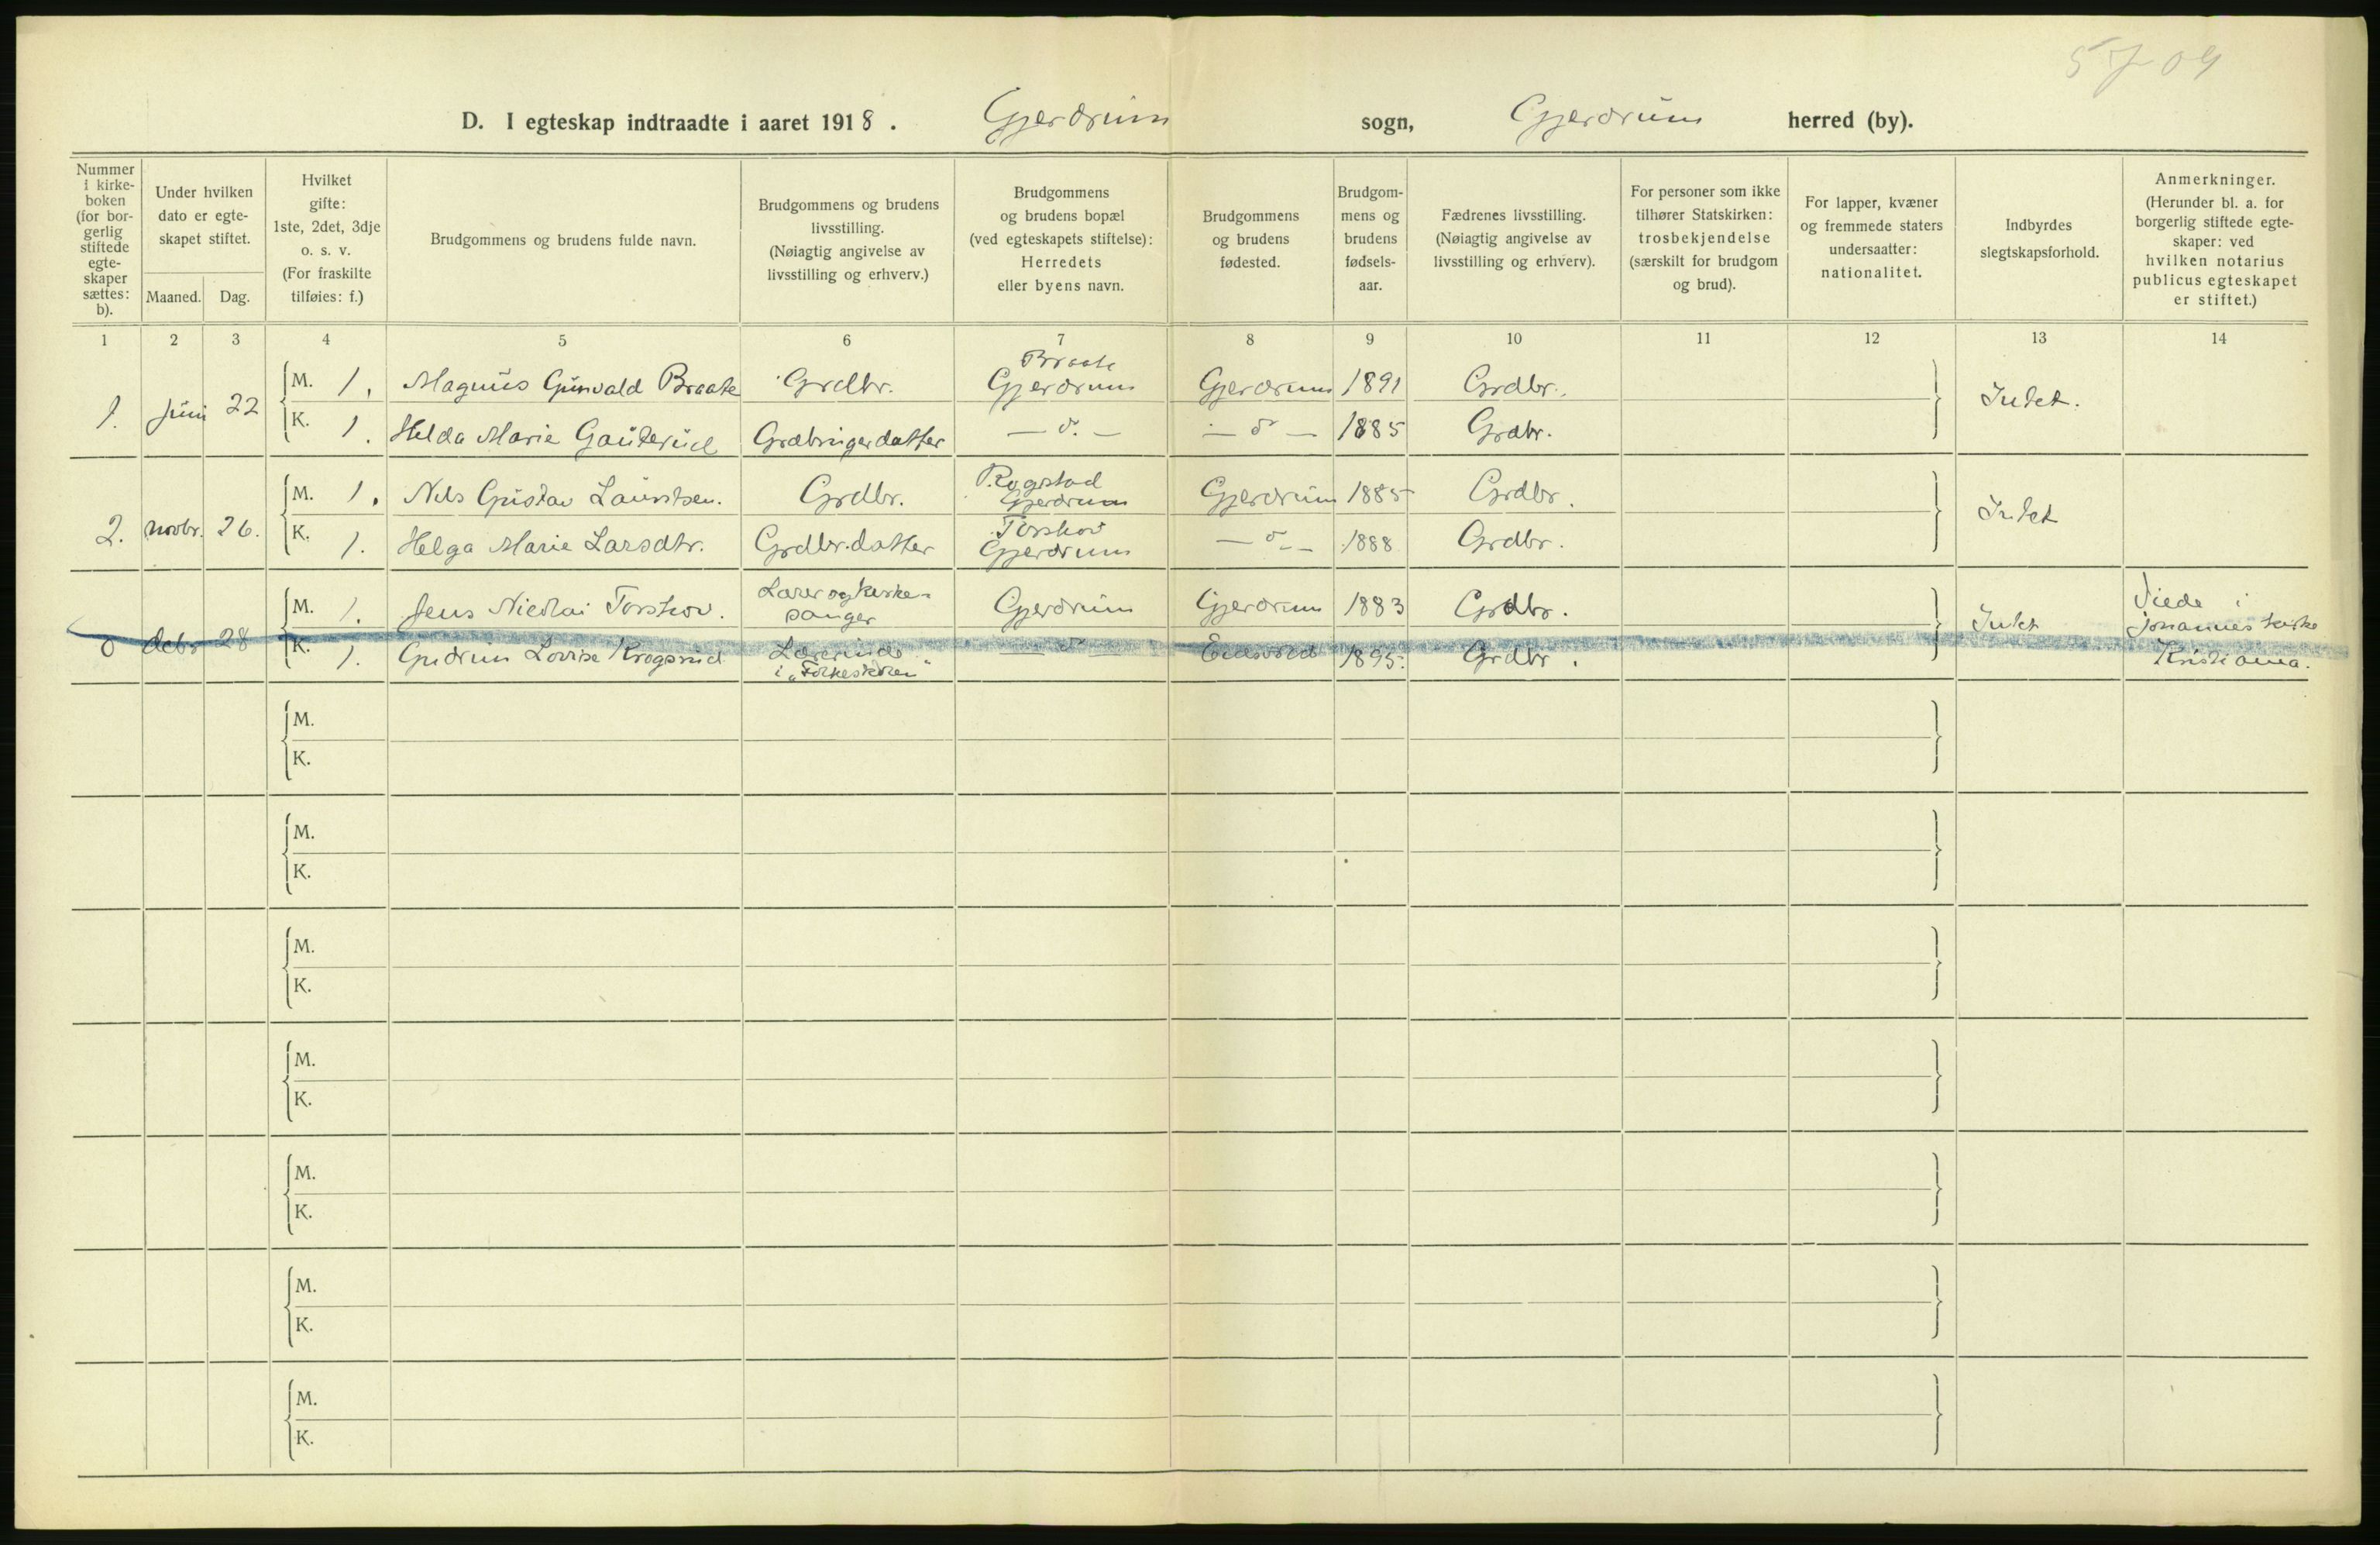 5709
D. I egteskap indtraadte i aaret 1918. Gjerdrum sogn, Gjerdrum herred (by).
Nummer
i kirke-
boken
(for bor-
gerlig
stiftede
egte-
skaper
sættes:
b).
Under hvilken
dato er egte-
skapet stiftet.
Maaned. Dag.
Hvilket
gifte:
1ste, 2det, 3dje
o. s. v.
(For fraskilte
tilføies: f.)
Brudgommens og brudens fulde navn.
Brudgommens og brudens
livsstilling.
(Nøiagtig angivelse av
livsstilling og erhverv.)
Brudgommens
og brudens bopæl
(ved egteskapets stiftelse):
Herredets
eller byens navn.
Brudgommens
og brudens
fødested.
Brudgom-
mens og
brudens
fødsels-
aar.
Fædrenes livsstilling.
(Nøiagtig angivelse av
livsstilling og erhverv).
For personer som ikke
tilhører Statskirken:
trosbekjendelse
(særskilt for brudgom
og brud).
For lapper, kvæner
og fremmede staters
undersaatter:
nationalitet.
Indbyrdes
slegtskapsforhold.
Anmerkninger.
(Herunder bl. a. for
borgerlig stiftede egte-
skaper: ved
hvilken notarius
publicus egteskapet
er stiftet.)
1 2 3 4 5 6 7 8 9 10 11 12 13 14
Braate
M. 1. Magnus Gunvald Braate Grdbr. Gjerdrum Gjerdrum 1891 Grdbr.
1. Juni 22 Intet.
K. 1. Helda Marie Gauterud Grdbrugerdatter — d. — — d — 1885 Grdbr.
Rogstad
M. 1. Nils Gustav Lauritsen. Grdbr. Gjerdrum Gjerdrum 1885 Grdbr.
2. novbr. 26. Intet
Torshov
K. 1. Helga Marie Larsdtr. Grdbr.datter Gjerdrum — d — 1888 Grdbr.
Lærer og kirke-
sanger
M. 1. Jens Nicolai Torshov. Gjerdrum Gjerdrum 1883 Grdbr. Viede i
0 debr 28 Intet Johannes kirke
K. 1. Gudrun Lovise Krogsrud Lærerinde — d — Eidsvold 1895. Grdbr. Kristiania.
i "Folkeskolen"
M.
K.
M.
K.
M.
K.
M.
K.
M.
K.
M.
K.
M.
K.